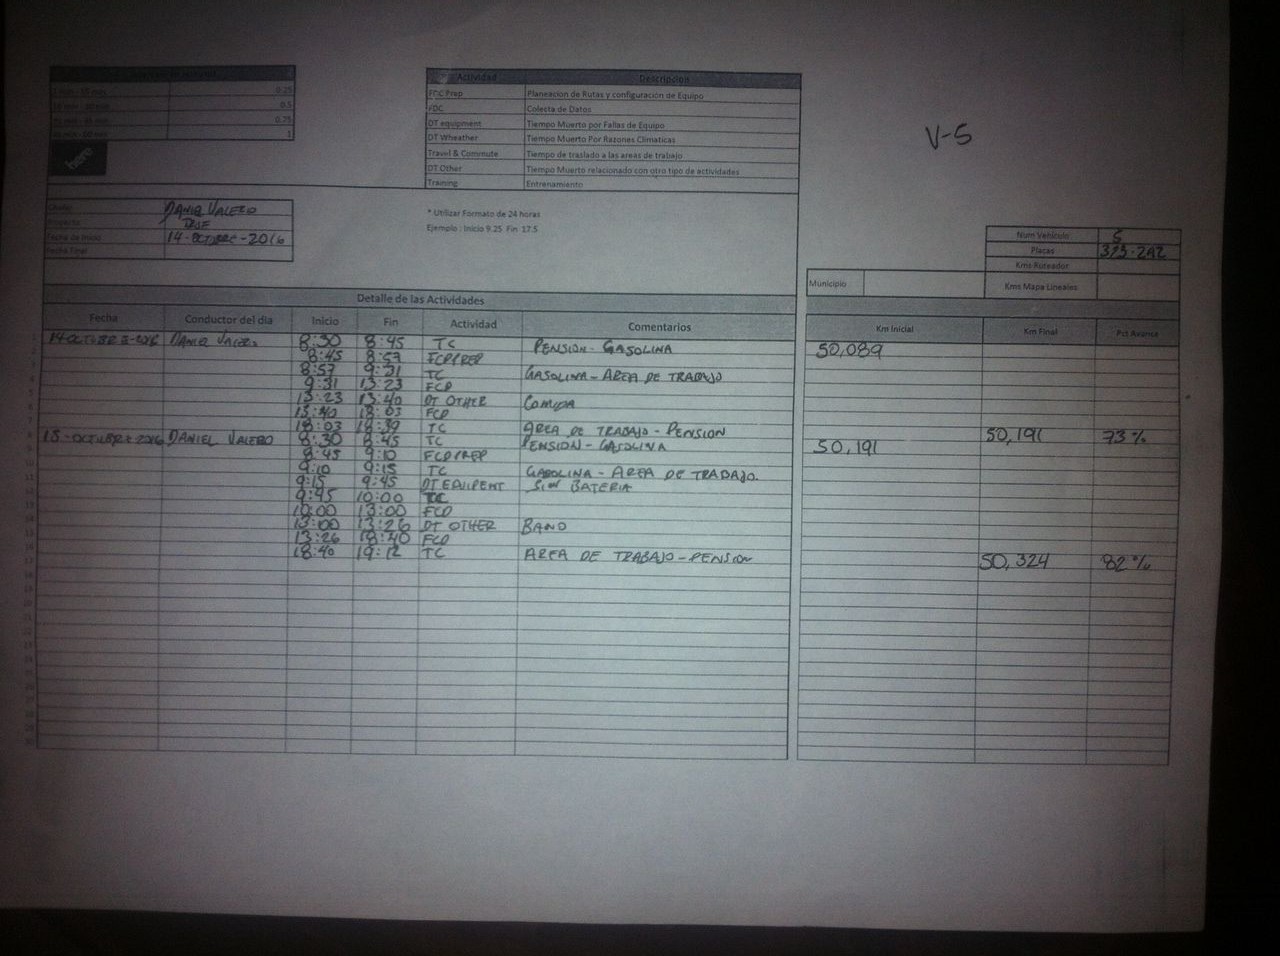 0.25
0.5
0.75
1
here
Actividad Descripcion
FDC Prep Planeacion de Rutas y configuración de Equipo
FDC Colecta de Datos
DT equipment Tiempo Muerto por Fallas de Equipo
DT Wheather Tiempo Muerto Por Razones Climaticas
Travel & Commute Tiempo de traslado a las areas de trabajo
DT Other Tiempo Muerto relacionado con otro tipo de actividades
Training Entrenamiento
V-5
DANIEL VALERO
Fecha de Inicio 14-OCTUBRE-2016
Fecha Final
* Utilizar Formato de 24 horas
Ejemplo : Inicio 9.25 Fin 17.5
Num Vehiculo 5
Placas 373-ZAZ
Kms Ruteador
Municipio Kms Mapa Lineales
Detalle de las Actividades
Fecha Conductor del dia Inicio Fin Actividad Comentarios Km Inicial Km Final Pct Avance
14-OCTUBRE-2016 DANIEL VALERO 8:30 8:45 TC PENSION-GASOLINA 50,089
8:45 8:57 FCD/PREP
8:57 9:31 TC GASOLINA-AREA DE TRABAJO
9:31 13:23 FCD
13:23 13:40 DT OTHER COMIDA
13:40 18:03 FCD
18:03 18:39 TC AREA DE TRABAJO-PENSION 50,191 73%
15-OCTUBRE-2016 DANIEL VALERO 8:30 8:45 TC PENSION-GASOLINA 50,191
8:45 9:10 FCD/PREP
9:10 9:15 TC GASOLINA-AREA DE TRABAJO.
9:15 9:45 DT EQUIPENT SIN BATERIA
9:45 10:00 TC
10:00 13:00 FCD
13:00 13:26 DT OTHER BANO
13:26 18:40 FCD
18:40 19:12 TC AREA DE TRABAJO-PENSION 50,324 82%